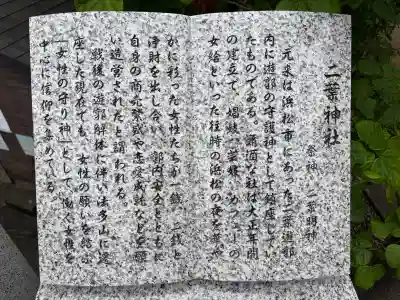 二葉神社
祭神　二葉明神
元来は浜松市にあった二葉遊郭
内に遊郭の守護神として鎮座してい
たものである。瀟洒な社は大正年間
の建立で、娼妓・芸妓・カフェーの
女給といった往時の浜松の夜を華や
かに彩った女性たちが一銭、二銭と
浄財を出し合い、郭内安全とともに
自身の商売繁盛や恋愛成就などを願
い造営されたと謂われる。
戦後の遊郭解体に伴い法多山に遷
座した現在でも、女性の願いを結ぶ
「女性の守り神」として、働く女性を
中心に信仰を集めている。